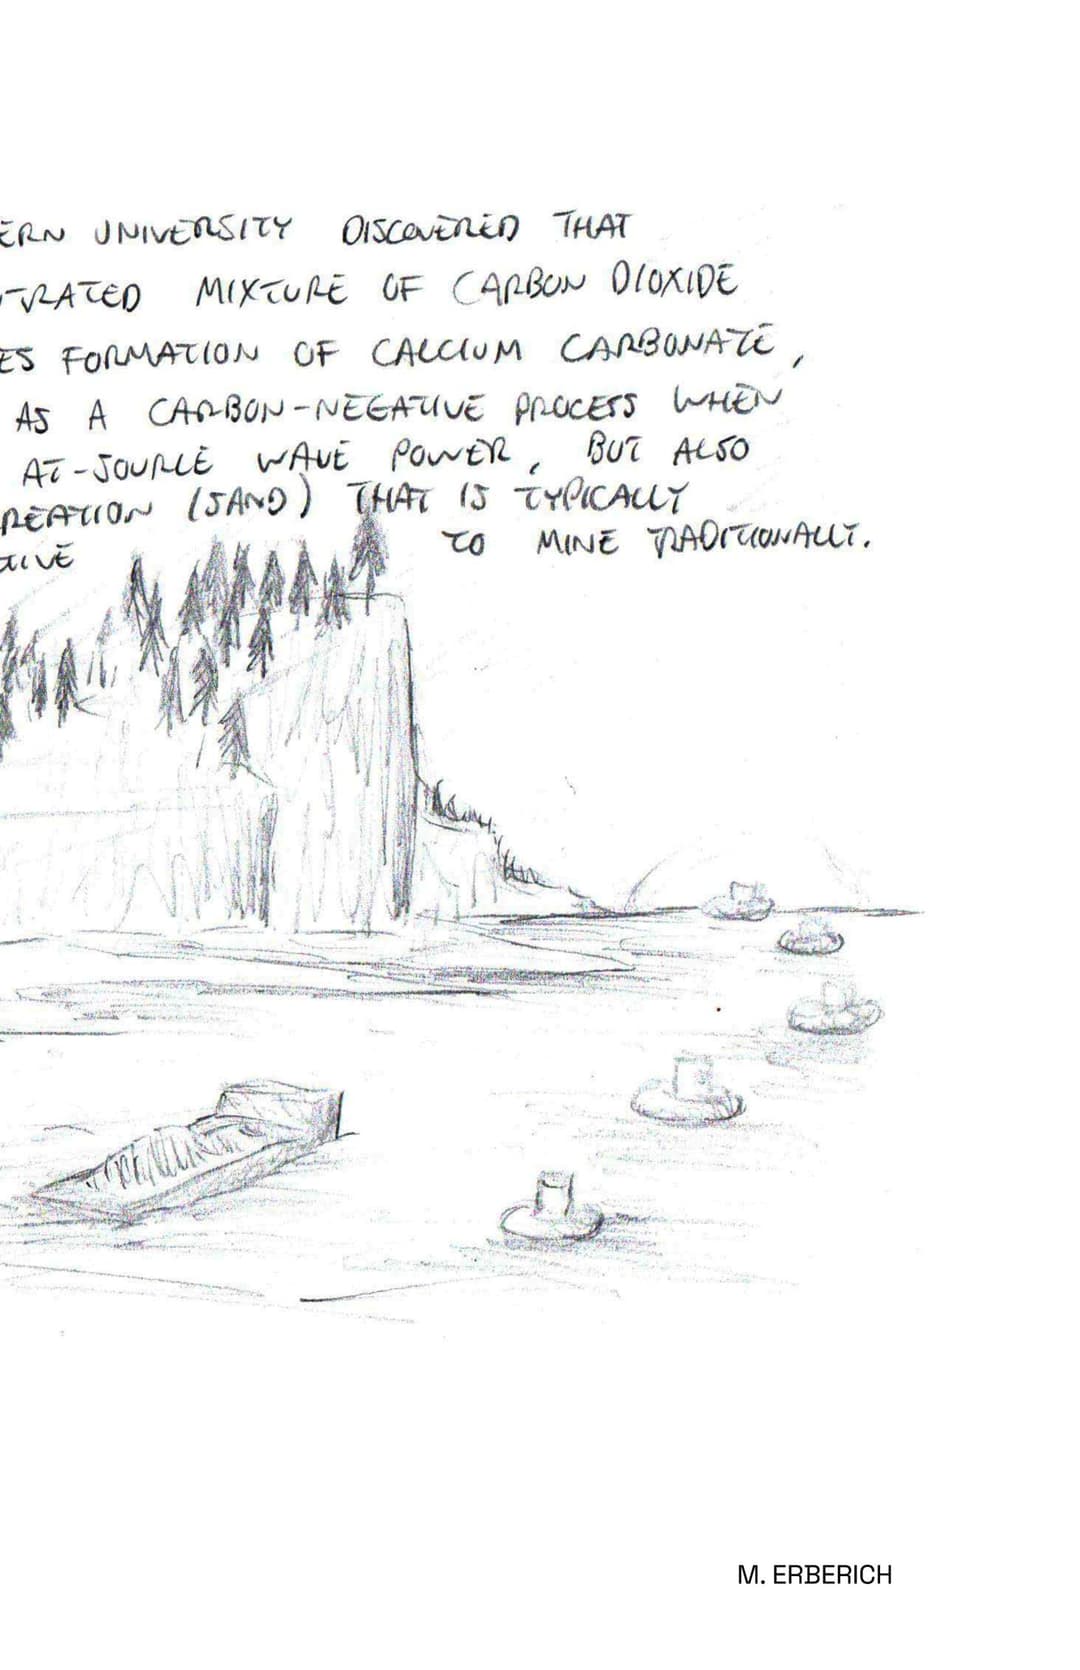 ERN UNIVERSITY DISCOVERED THAT
TRATED MIXTURE OF CARBON DIOXIDE
ES FORMATION OF CALCIUM CARBONATE,
AS A CARBON-NEGATIVE PROCESS WHEN
AT-SOURCE WAVE POWER, BUT ALSO
REATION (SAND) THAT IS TYPICALLY
TIVE TO MINE TRADITIONALLY.
M. ERBERICH